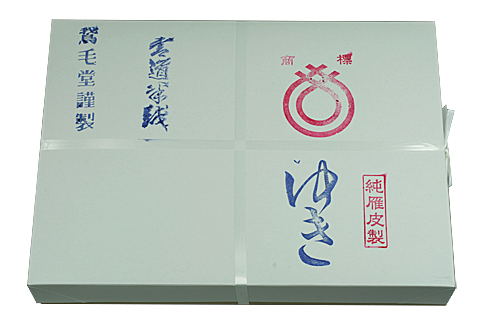 商標
ゆき
純雁皮製
書道半紙
鵞毛堂謹製